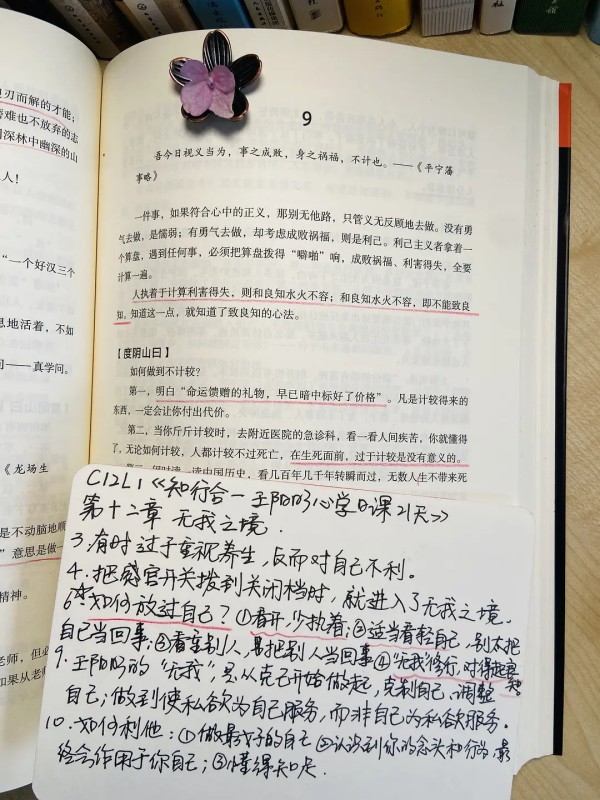 刃而解的才能；
难也不放弃的志
深林中幽深的山
人！
“一个好汉三个
思地活着，不如
问——真学问。
《龙场生
是不动脑地顺
”意思是做一
精神。
老师，但必
如果从老师
9
吾今日视义当为，事之成败，身之祸福，不计也。——《平宁藩
事略》
一件事，如果符合心中的正义，那别无他路，只管义无反顾地去做。没有勇
气去做，是懦弱；有勇气去做，却考虑成败祸福，则是利己。利己主义者拿着一
个算盘，遇到任何事，必须把算盘拨得“噼啪”响，成败祸福、利害得失，全要
计算一遍。
人执着于计算利害得失，则和良知水火不容；和良知水火不容，即不能致良
知，知道这一点，就知道了致良知的心法。
【度阴山曰】
如何做到不计较？
第一，明白“命运馈赠的礼物，早已暗中标好了价格”。凡是计较得来的
东西，一定会让你付出代价。
第二，当你斤斤计较时，去附近医院的急诊科，看一看人间疾苦，你就懂得
了，无论如何计较，人都计较不过死亡，在生死面前，过于计较是没有意义的。
读一读中国历史，看几百年几千年转瞬而过，无数人生不带来死
C12L1《知行合一王阳明心学日课21天》
第十二章 无我之境.
3.有时过于重视养生，反而对自己不利。
4.把感官开关拨到关闭档时，就进入了无我之境.
6.如何放过自己？①看开,少执着；②适当看轻自己，别太把
自己当回事；③看重别人，要把别人当回事④“无我”修行，对得起良知。
9.王阳明的“无我”，是从克己开始做起，克制自己、调整
自己；做到使私欲为自己服务，而非自己为私欲服务。
10.如何利他：①做最好的自己 ②认识到你的念头和行为，最
终会作用于你自己；③懂得知足.